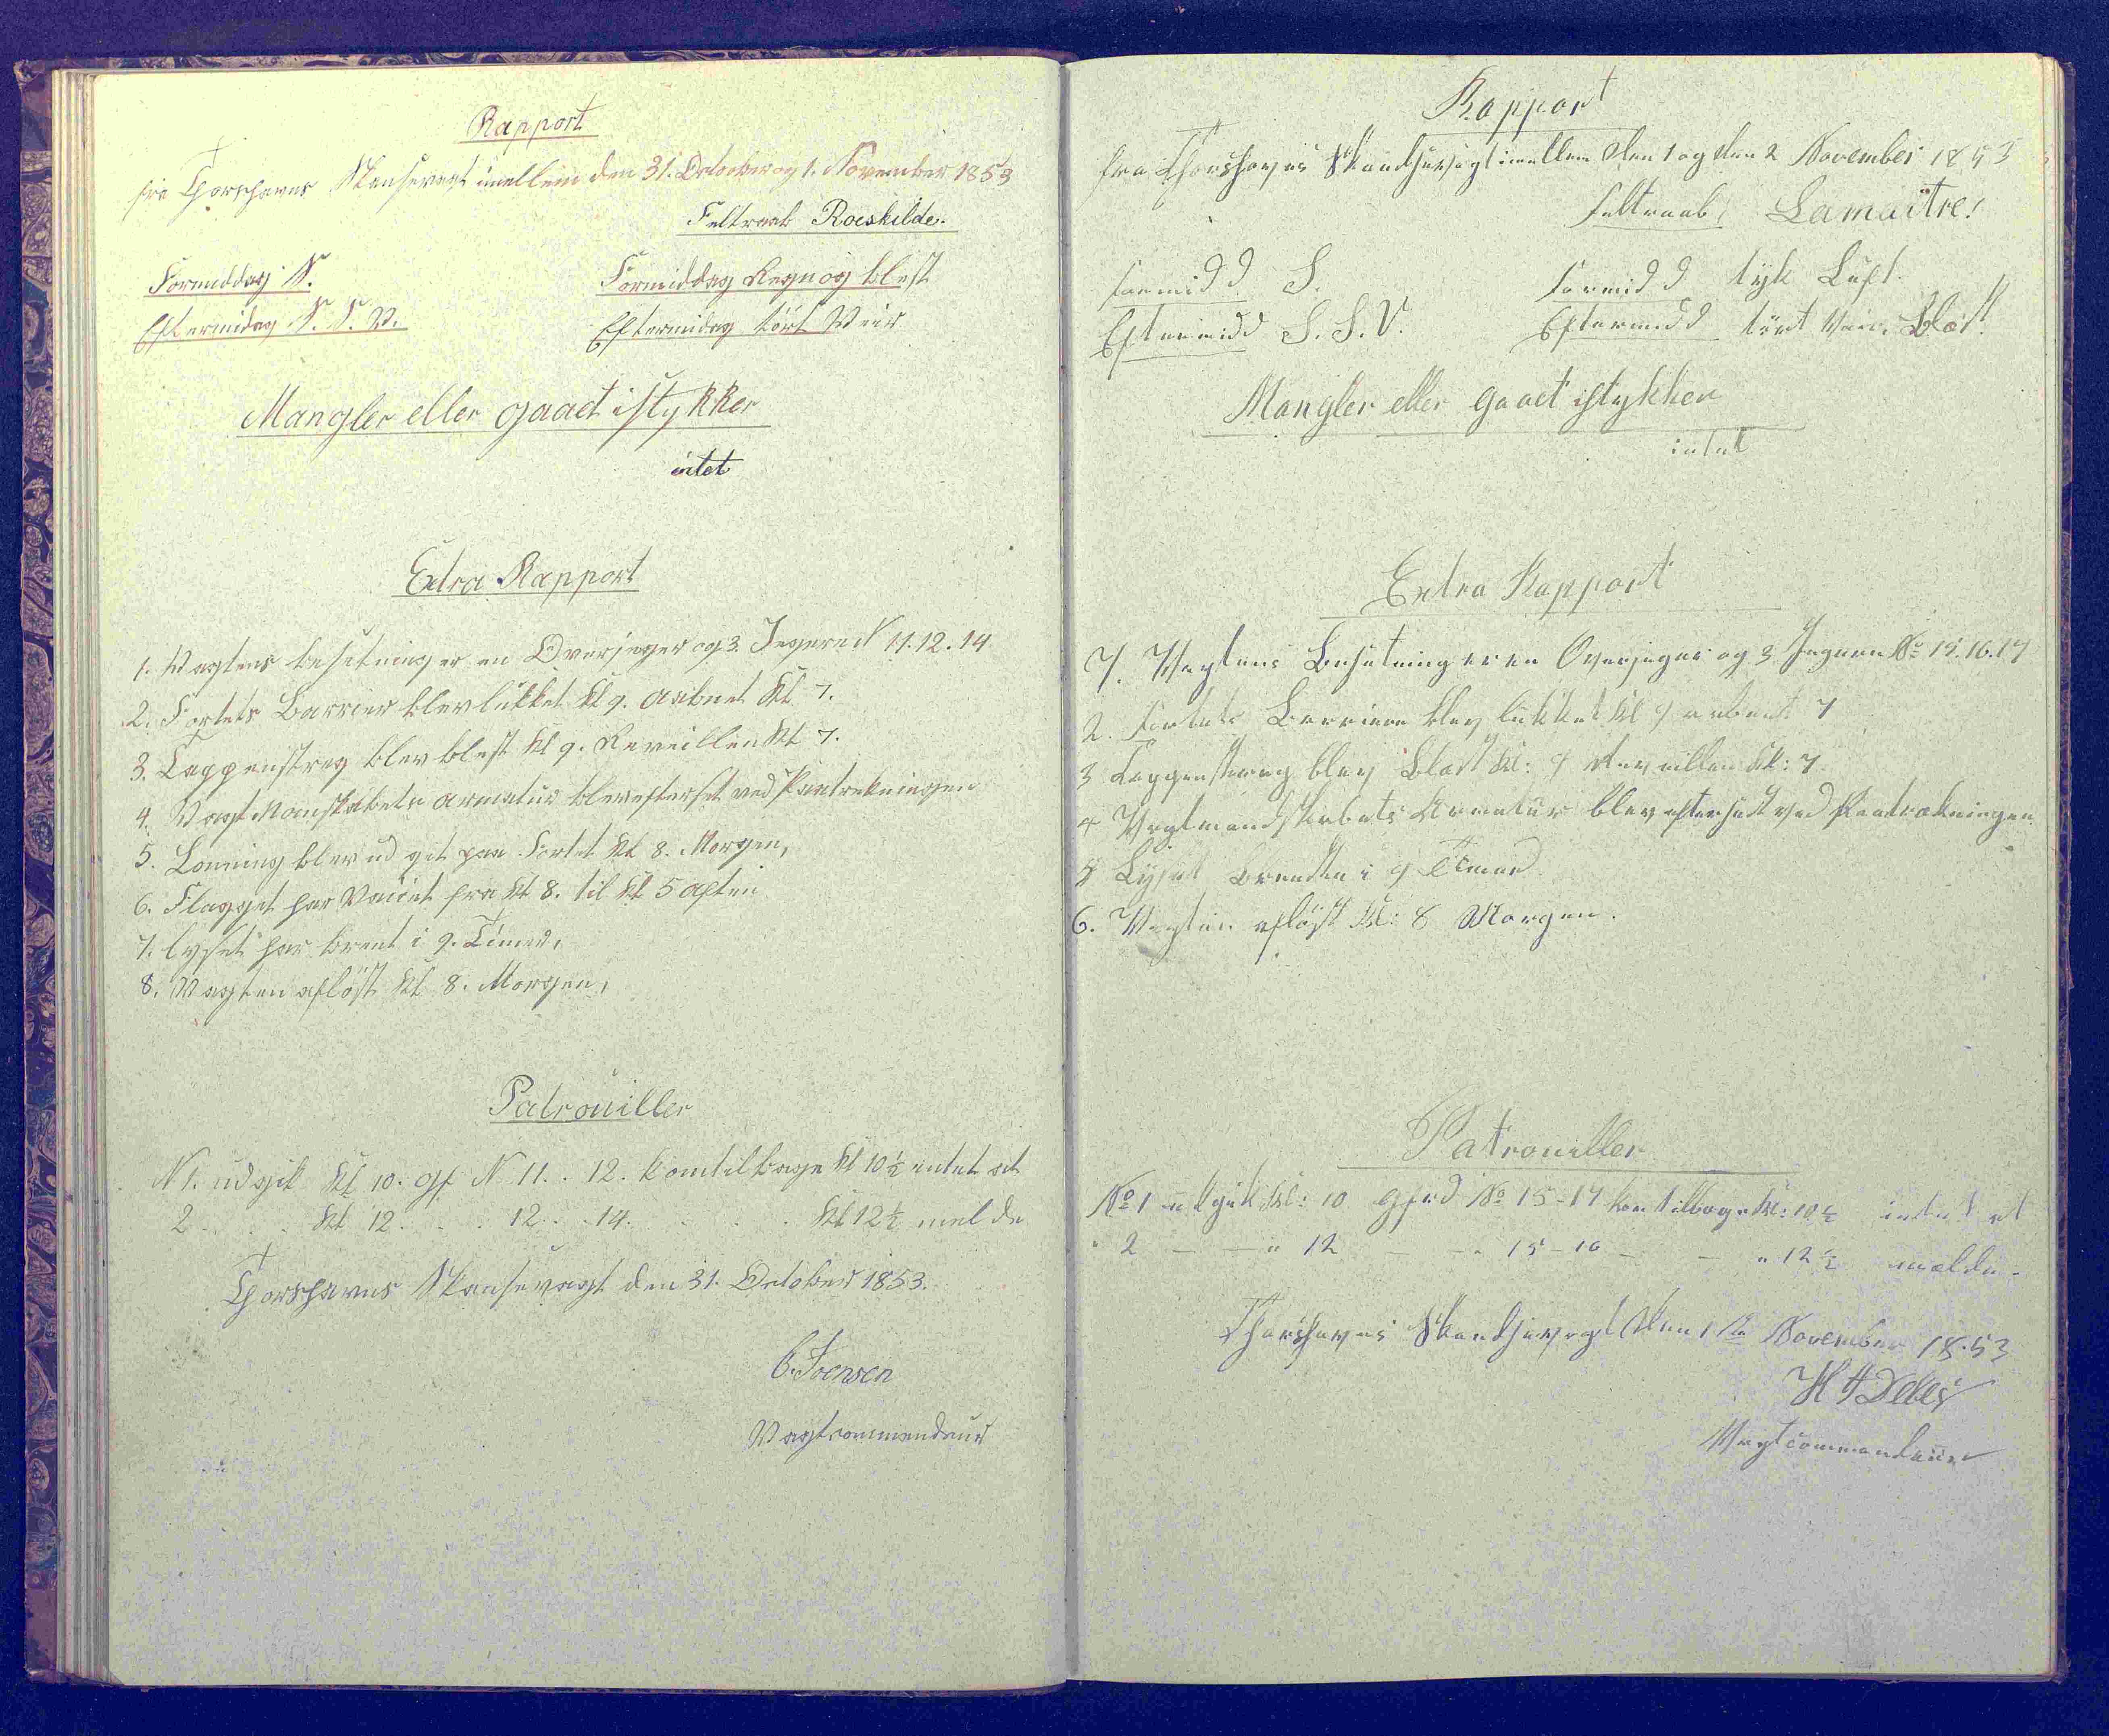 Rapport
fra Thorshavns Skansevagt imellem den 31. October og 1. November 1853
Feltraab Roeskilde.
Formiddag S. Formiddag Regn og Blest
Eftermidag S. S. V. Eftermidag tört Veir
Mangler eller gaaet istykker
intet
Extra Rapport
1. Vagtens besetning er en Overjeger og 3 Jegere N 11. 12. 14
2. Fortets Barrier blev lükket Kl 9. aabnet Kl 7.
3. Tappenstreg blev blest Kl 9. Reveillen Kl 7.
4. Vagt Manskabets armatur blev efterset ved Paatrekningen
5. Lönning blev ud git paa Fortet Kl 8. Morgen,
6. Flagget har Vaiet fra Kl 8. til Kl 5 aften
7. lyset har brent i 9. Timer,
8. Vagten aflöst Kl 8. Morgen,
Patrouiller
N 1. udgik Kl 10. gf N 11. . 12. kom tilbage Kl 10½ intet at
2 . . . Kl 12 . . . 12 . . 14 . . . . Kl 12½ melde
Thorshavns Skansevagt den 31. October 1853.
C. Joensen
Vagtcommendeur
Rapport
fra Thorshavns Skandsevagt imellem den 1 og den 2 November 1853
Feltraab, Lamaitre!
Formidd S. Formidd tyk Luft.
Eftermidd S. S. V. Eftermidd tört Veir, Blæst.
Mangler eller gaaet istykker
intet
Extra Rapport
1. Vagtens Besetning er en Overjeger og 3 Jegere No 15. 16. 17
2. Fortets Barriere blev lükket Kl 9 aabnet 7
3 Tappenstreg blev blæst Kl: 9 Reveillen Kl: 7.
4 Vagtmandskabets Armatur blev efterseet ved Paatrækningen.
5 Lyset brendte i 9 Timer
6. Vagten aflöst Kl: 8 Morgen.
Patrouiller
No 1 udgik Kl: 10 Gefrd No 15-17 kom tilbage Kl: 10½ intet at
" 2 — — " 12 — — " 15-16 — — " 12½ melde.
Thorshavns Skandsevagt den 1ste November 1853
H Debes
Vagtcommandeur